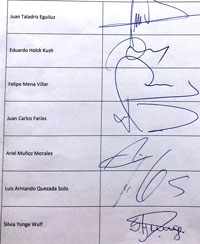 Juan Taladriz Eguiluz
Eduardo Holck Kush
Felipe Mena Villar
Juan Carlos Farías
Ariel Muñoz Morales
Luis Armando Quesada Solis
Silvia Yunge Wulf